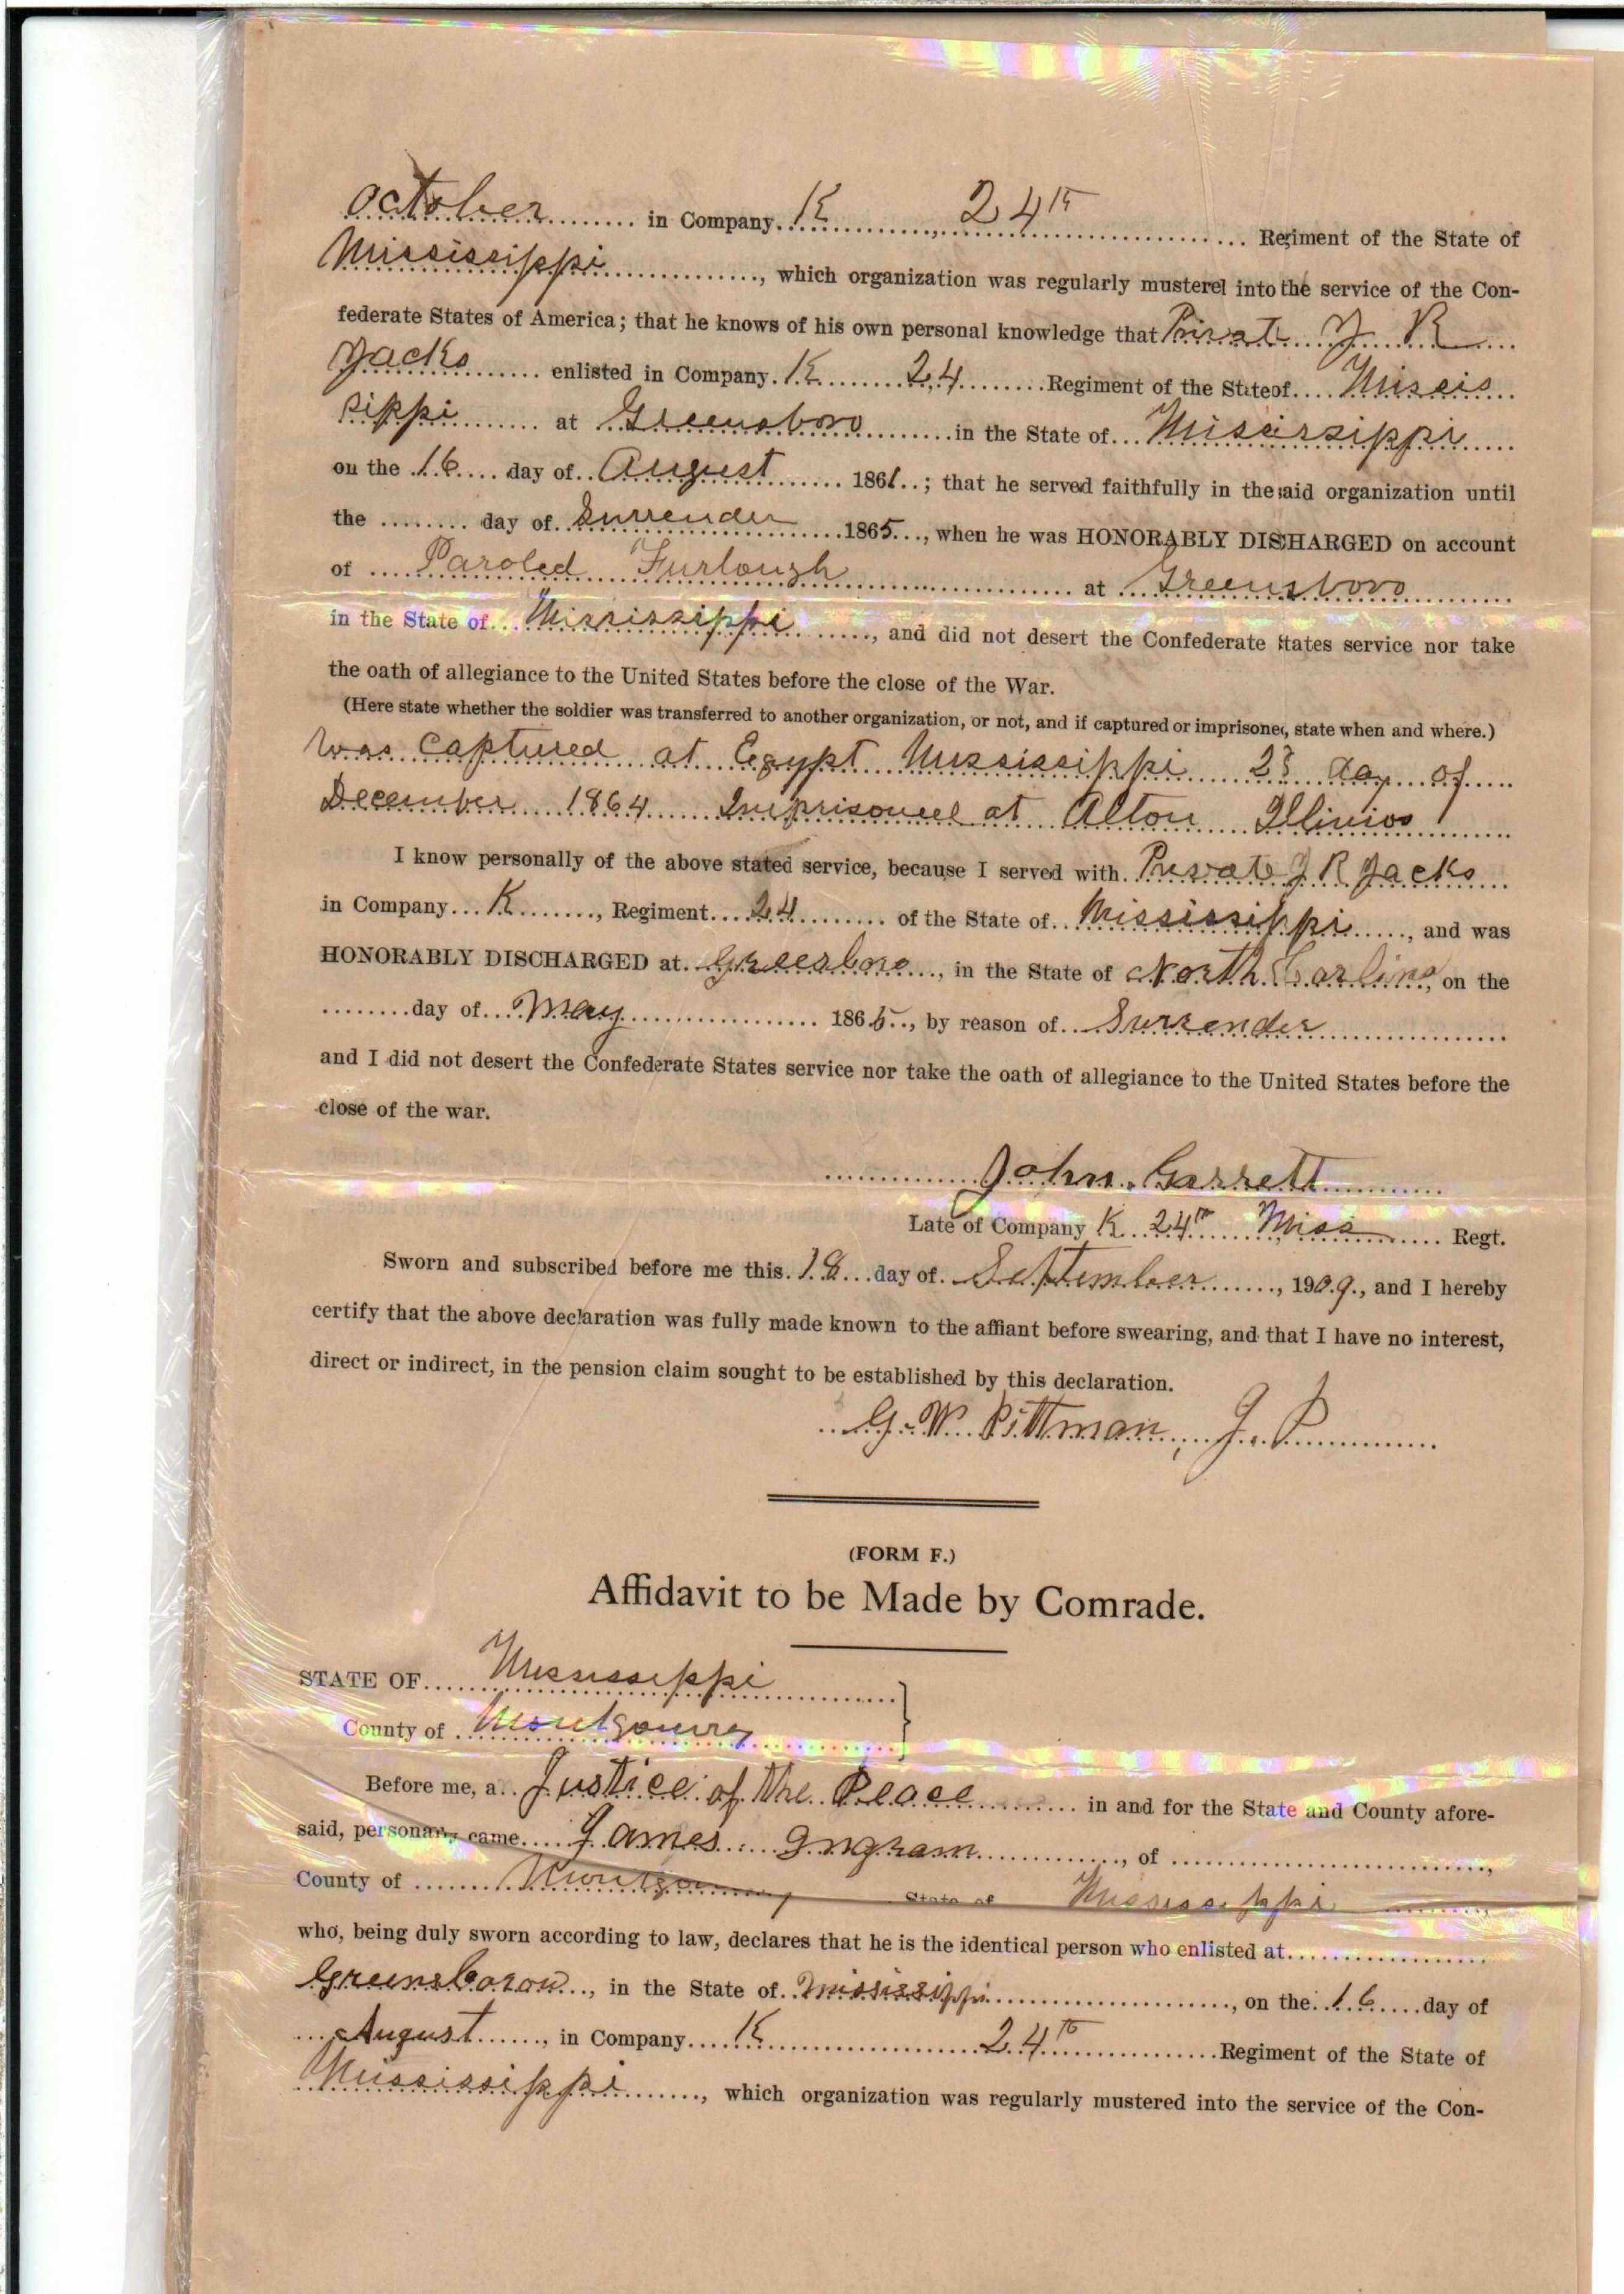 October in Company K, 24th Regiment of the State of
Mississippi, which organization was regularly mustered into the service of the Con-
federate States of America; that he knows of his own personal knowledge that Private J R
Jacks enlisted in Company K 24 Regiment of the State of Missis
sippi at Greensboro in the State of Mississippi
on the 16 day of August 1861; that he served faithfully in the said organization until
the day of Surrender 1865, when he was HONORABLY DISCHARGED on account
of Paroled Furlough at Greensboro
in the State of Mississippi, and did not desert the Confederate States service nor take
the oath of allegiance to the United States before the close of the War.
(Here state whether the soldier was transferred to another organization, or not, and if captured or imprisoned, state when and where.)
Was captured at Egypt Mississippi 28 day of
December 1864 Imprisoned at Alton Illinios
I know personally of the above stated service, because I served with Private J R Jacks
in Company K, Regiment 24 of the State of Mississippi, and was
HONORABLY DISCHARGED at Greesboro, in the State of North Carlina, on the
day of May 1865, by reason of Surrender
and I did not desert the Confederate States service nor take the oath of allegiance to the United States before the
close of the war.
John Garrett
Late of Company K 24th Miss Regt.
Sworn and subscribed before me this 18 day of September, 1909, and I hereby
certify that the above declaration was fully made known to the affiant before swearing, and that I have no interest,
direct or indirect, in the pension claim sought to be established by this declaration.
G. W. Pittman, J. P.
(FORM F.)
Affidavit to be Made by Comrade.
STATE OF Mississippi
County of Montgomery
Before me, a Justice of the Peace in and for the State and County afore-
said, personally came James Ingram, of
County of Montgomery State of Mississippi
who, being duly sworn according to law, declares that he is the identical person who enlisted at
Greensborow, in the State of Mississippi, on the 16 day of
August, in Company K 24th Regiment of the State of
Mississippi, which organization was regularly mustered into the service of the Con-